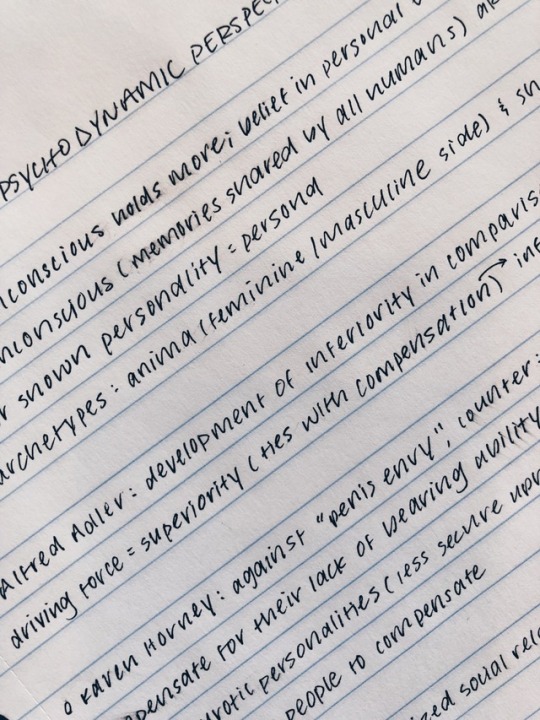 PSYCHODYNAMIC PERSPEC
conscious holds more; belief in personal
nconscious (memories shared by all humans) ar
r shown personality = persona
archetypes: anima (feminine/masculine side) & sh
Alfred Adler: development of inferiority in comparis
driving force = superiority (ties with compensation) → inf
o Karen Horney: against "penis envy", counter:
pensate for their lack of bearing ability
rotic personalities (less secure upr
people to compensate
ced social rela